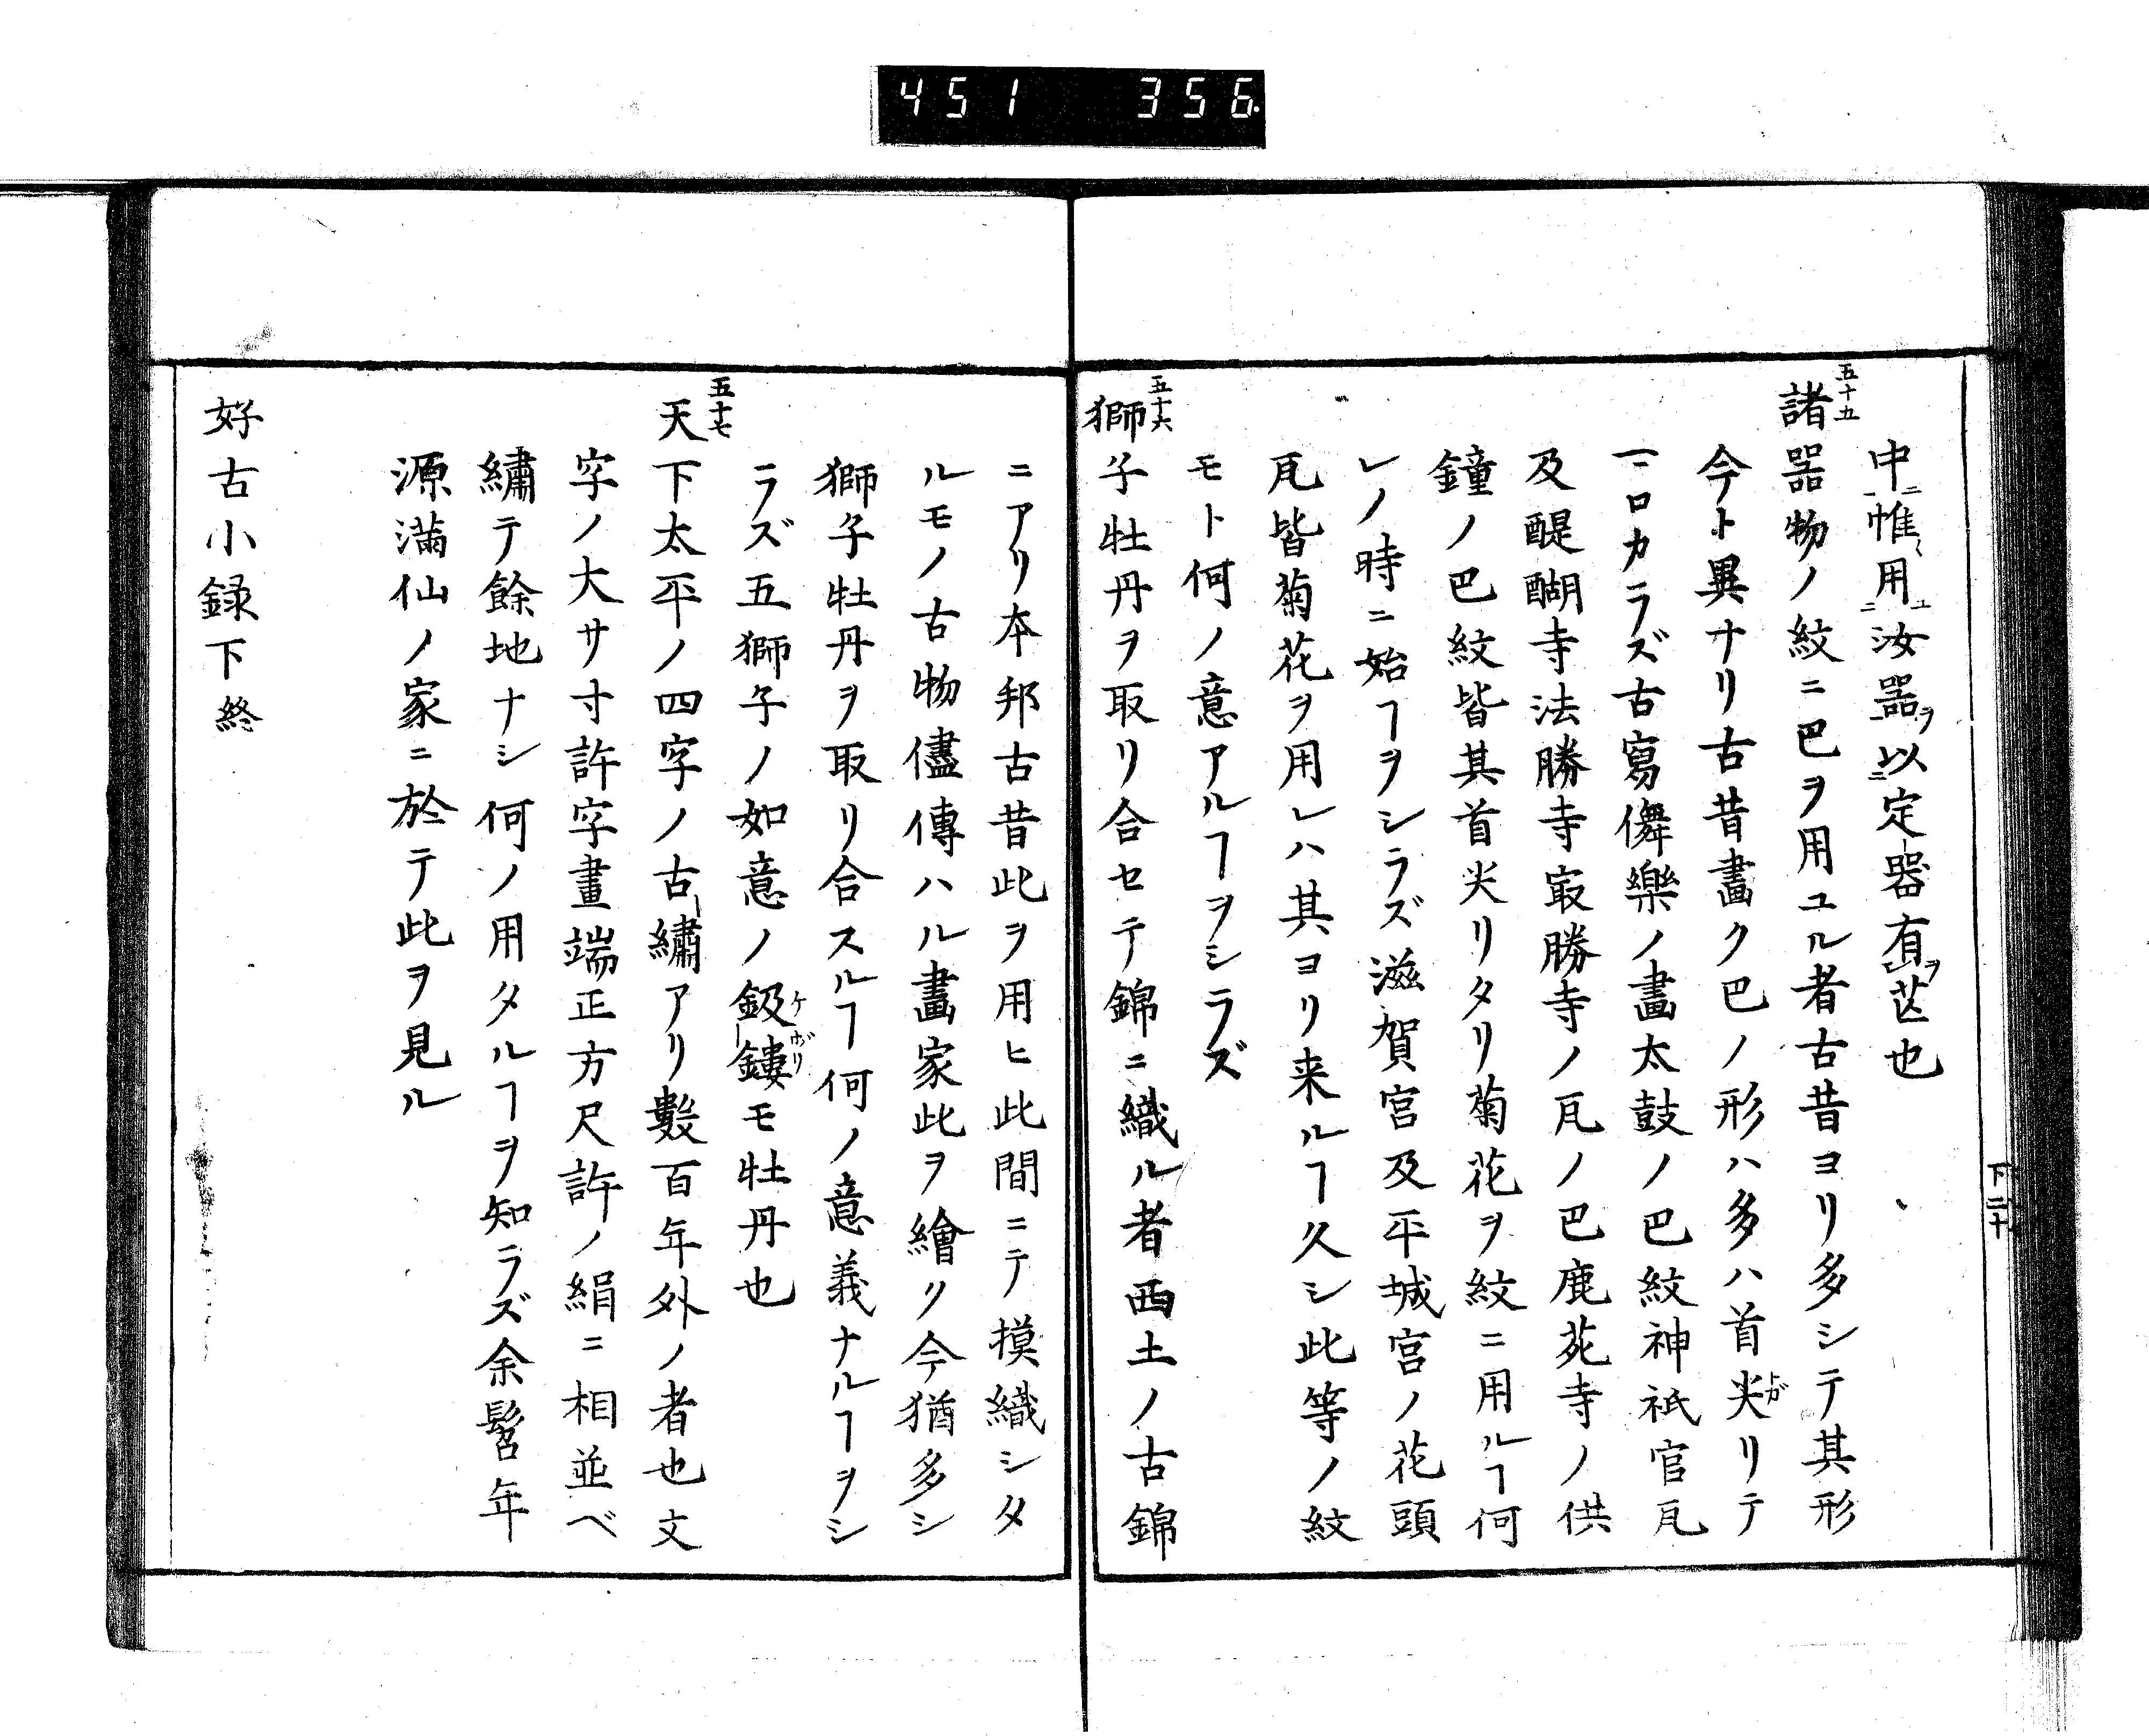 451 356
中惟用汝器ヲ以定器有芒也
五十五
諸器物ノ紋ニ巴ヲ用ユル者古昔ヨリ多シテ其形
今ト異ナリ古昔畫ク巴ノ形ハ多ハ首尖リテ
一ニロカラズ古寫儛樂ノ畫太鼓ノ巴紋神祇官瓦
及醍醐寺法勝寺㝡勝寺ノ瓦ノ巴鹿苑寺ノ供
鐘ノ巴紋皆其首尖リタリ菊花ヲ紋ニ用ルヿ何
レノ時ニ始ヿヲシラズ滋賀宮及平城宮ノ花頭
瓦皆菊花ヲ用レハ其ヨリ来ルヿ久シ此等ノ紋
モト何ノ意アルヿヲシラズ
五十六
獅子牡丹ヲ取リ合セテ錦ニ織ル者西土ノ古錦
下二十
ニアリ本邦古昔此ヲ用ヒ此間ニテ摸織シタ
ルモノ古物儘傳ハル畫家此ヲ繪ク今猶多シ
獅子牡丹ヲ取リ合スルヿ何ノ意義ナルヿヲシ
ラズ五獅子ノ如意ノ鈒鏤モ牡丹也
五十七
天下太平ノ四字ノ古繡アリ數百年外ノ者也文
字ノ大サ寸許字畫端正方尺許ノ絹ニ相並ベ
繡テ餘地ナシ何ノ用タルヿヲ知ラズ余髫年
源滿仙ノ家ニ於テ此ヲ見ル
好古小録下終